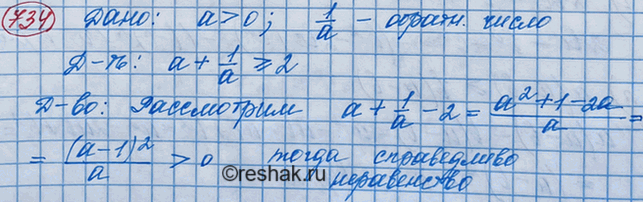 734 Дано: a > 0; 1/a - обратн. число
Д-ть: a + 1/a ⩾ 2
Д-во: Рассмотрим a + 1/a - 2 = (a² + 1 - 2a)/a =
= (a-1)²/a > 0 тогда справедливо
неравенство
©reshak.ru